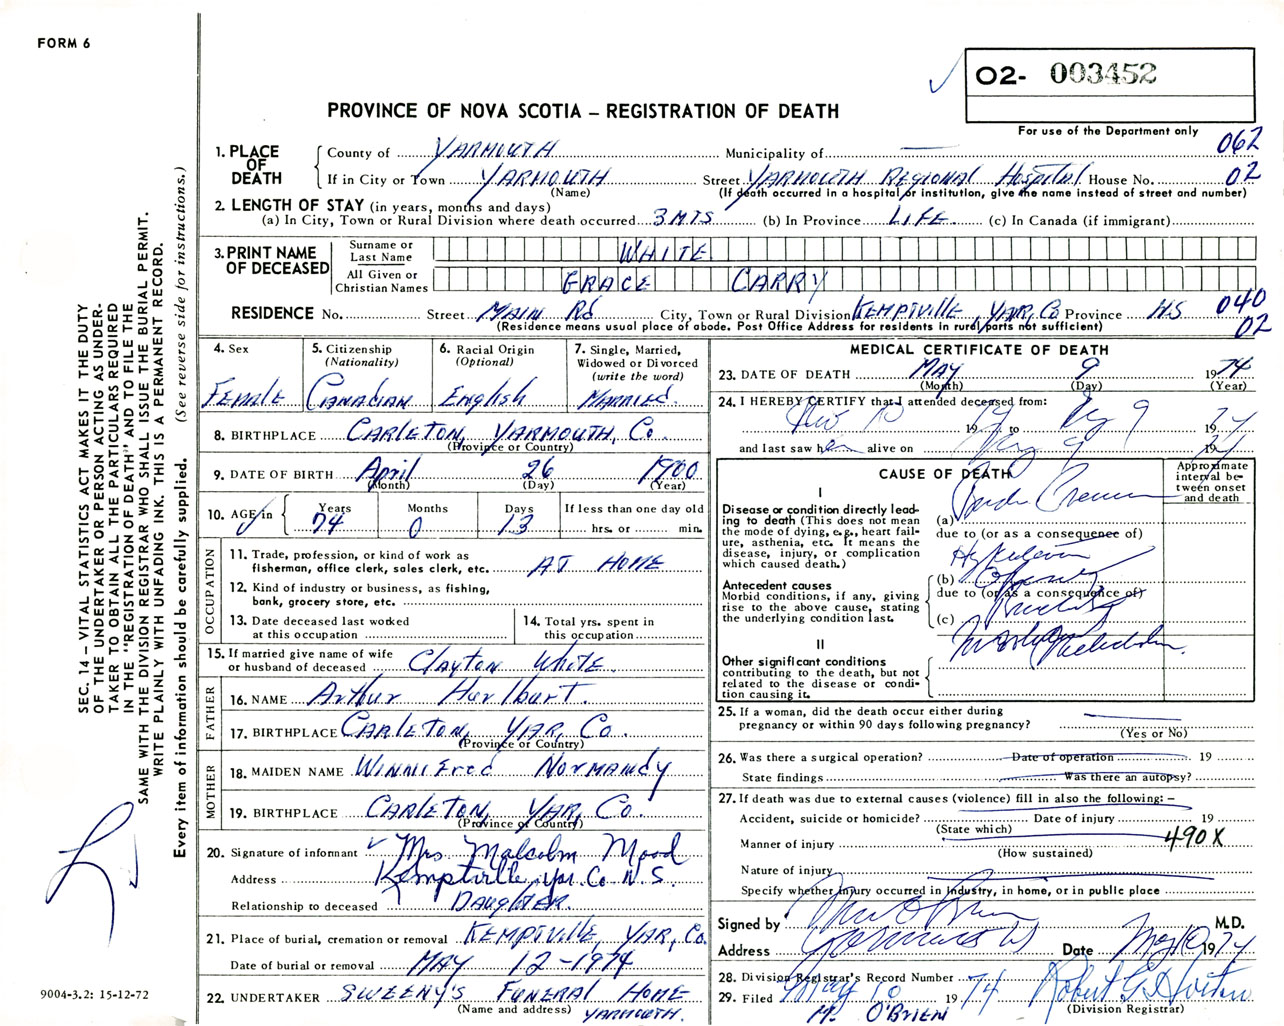 FORM 6
O2- 003452
PROVINCE OF NOVA SCOTIA – REGISTRATION OF DEATH
For use of the Department only
062
02
1. PLACE OF DEATH
County of YARMOUTH Municipality of —
If in City or Town YARMOUTH Street YARMOUTH REGIONAL HOSPITAL House No.
(Name) (If death occurred in hospital or institution, give the name instead of street and number)
2. LENGTH OF STAY (in years, months and days)
(a) In City, Town or Rural Division where death occurred 3 MTS (b) In Province LIFE (c) In Canada (if immigrant)
3. PRINT NAME OF DECEASED
Surname or Last Name WHITE
All Given or Christian Names GRACE CARRY
RESIDENCE No. Street MAIN Rd City, Town or Rural Division KEMPTVILLE, YAR, Co Province N.S
040
02
(Residence means usual place of abode. Post Office Address for residents in rural parts not sufficient)
4. Sex FEMALE
5. Citizenship (Nationality) CANADIAN
6. Racial Origin (Optional) English
7. Single, Married, Widowed or Divorced (write the word) MARRIED.
8. BIRTHPLACE CARLETON, YARMOUTH, Co.
(Province or Country)
9. DATE OF BIRTH April 26 1900
(Month) (Day) (Year)
10. AGE in Years 74 Months 0 Days 13 If less than one day old hrs. or min.
OCCUPATION
11. Trade, profession, or kind of work as fisherman, office clerk, sales clerk, etc. AT HOME
12. Kind of industry or business, as fishing, bank, grocery store, etc.
13. Date deceased last worked at this occupation
14. Total yrs. spent in this occupation
15. If married give name of wife or husband of deceased Clayton White
FATHER
16. NAME Arthur Hurlburt.
17. BIRTHPLACE CARLETON, YAR, Co.
(Province or Country)
MOTHER
18. MAIDEN NAME WINNIFred NORMANDY
19. BIRTHPLACE CARLETON, YAR, Co.
(Province or Country)
20. Signature of informant Mrs. Malcolm Mood
Address Kemptville, Yar. Co N.S.
Relationship to deceased DAUGHTER.
21. Place of burial, cremation or removal KEMPTVILLE, YAR, Co.
Date of burial or removal MAY 12-1974
22. UNDERTAKER SWEENY'S FUNERAL HOME
(Name and address) YARMOUTH.
MEDICAL CERTIFICATE OF DEATH
23. DATE OF DEATH MAY 9 1974
(Month) (Day) (Year)
24. I HEREBY CERTIFY that I attended deceased from:
19 to May 9 1974
and last saw her alive on May 9 1974
CAUSE OF DEATH
Approximate interval between onset and death
I
Disease or condition directly leading to death (This does not mean the mode of dying, e.g., heart failure, asthenia, etc. It means the disease, injury, or complication which caused death.)
(a)
due to (or as a consequence of)
Antecedent causes
Morbid conditions, if any, giving rise to the above cause, stating the underlying condition last.
(b)
due to (or as a consequence of)
(c)
II
Other significant conditions contributing to the death, but not related to the disease or condition causing it.
25. If a woman, did the death occur either during pregnancy or within 90 days following pregnancy?
(Yes or No)
26. Was there a surgical operation? Date of operation 19
State findings Was there an autopsy?
27. If death was due to external causes (violence) fill in also the following: –
Accident, suicide or homicide? Date of injury 19
(State which)
Manner of injury 490X
(How sustained)
Nature of injury
Specify whether injury occurred in industry, in home, or in public place
Signed by M.D.
Address Date May 10 1974
28. Division Registrar's Record Number
29. Filed May 10 1974
(Division Registrar)
M. O'BRIEN
SEC. 14 – VITAL STATISTICS ACT MAKES IT THE DUTY
OF THE UNDERTAKER OR PERSON ACTING AS UNDER-
TAKER TO OBTAIN ALL THE PARTICULARS REQUIRED
IN THE "REGISTRATION OF DEATH" AND TO FILE THE
SAME WITH THE DIVISION REGISTRAR WHO SHALL ISSUE THE BURIAL PERMIT.
WRITE PLAINLY WITH UNFADING INK. THIS IS A PERMANENT RECORD.
Every item of information should be carefully supplied. (See reverse side for instructions.)
9004-3.2: 15-12-72